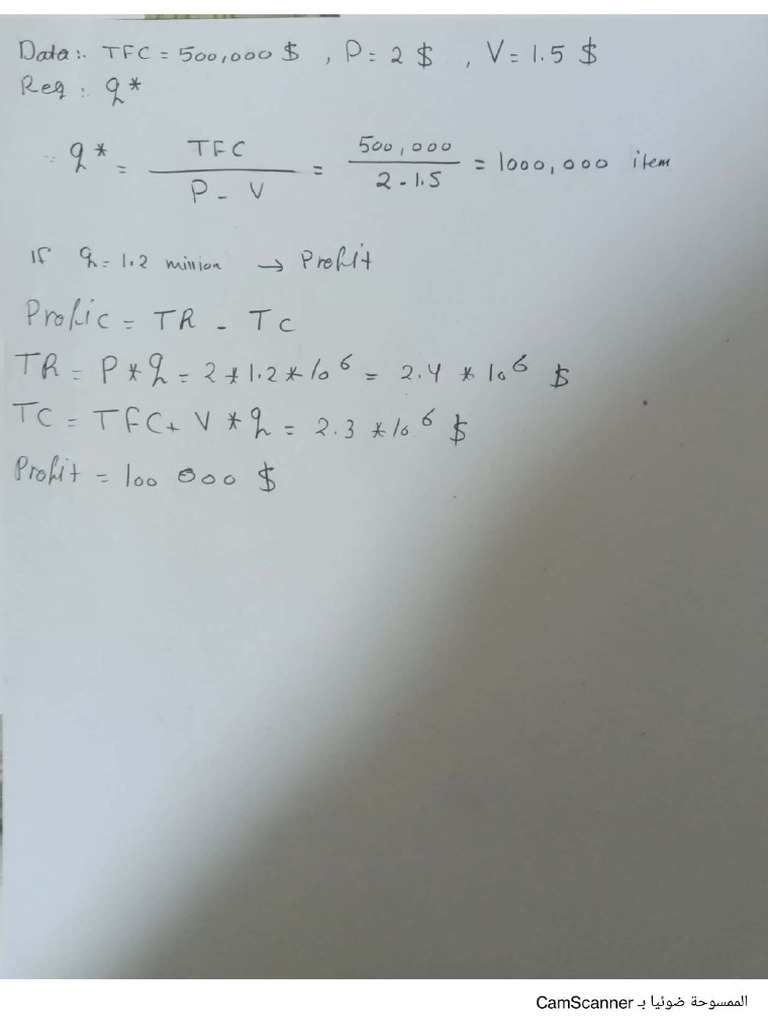 Data:. TFC = 500,000 $ , P = 2 $ , V = 1.5 $
Req : q*
∵ q* = TFC / P - V = 500,000 / 2 - 1.5 = 1000,000 item
IF q = 1.2 million → Profit
Profic = TR - TC
TR = P * q = 2 * 1.2 * 10^6 = 2.4 * 10^6 $
TC = TFC + V * q = 2.3 * 10^6 $
Profit = 100 000 $
الممسوحة ضوئيا بـ CamScanner